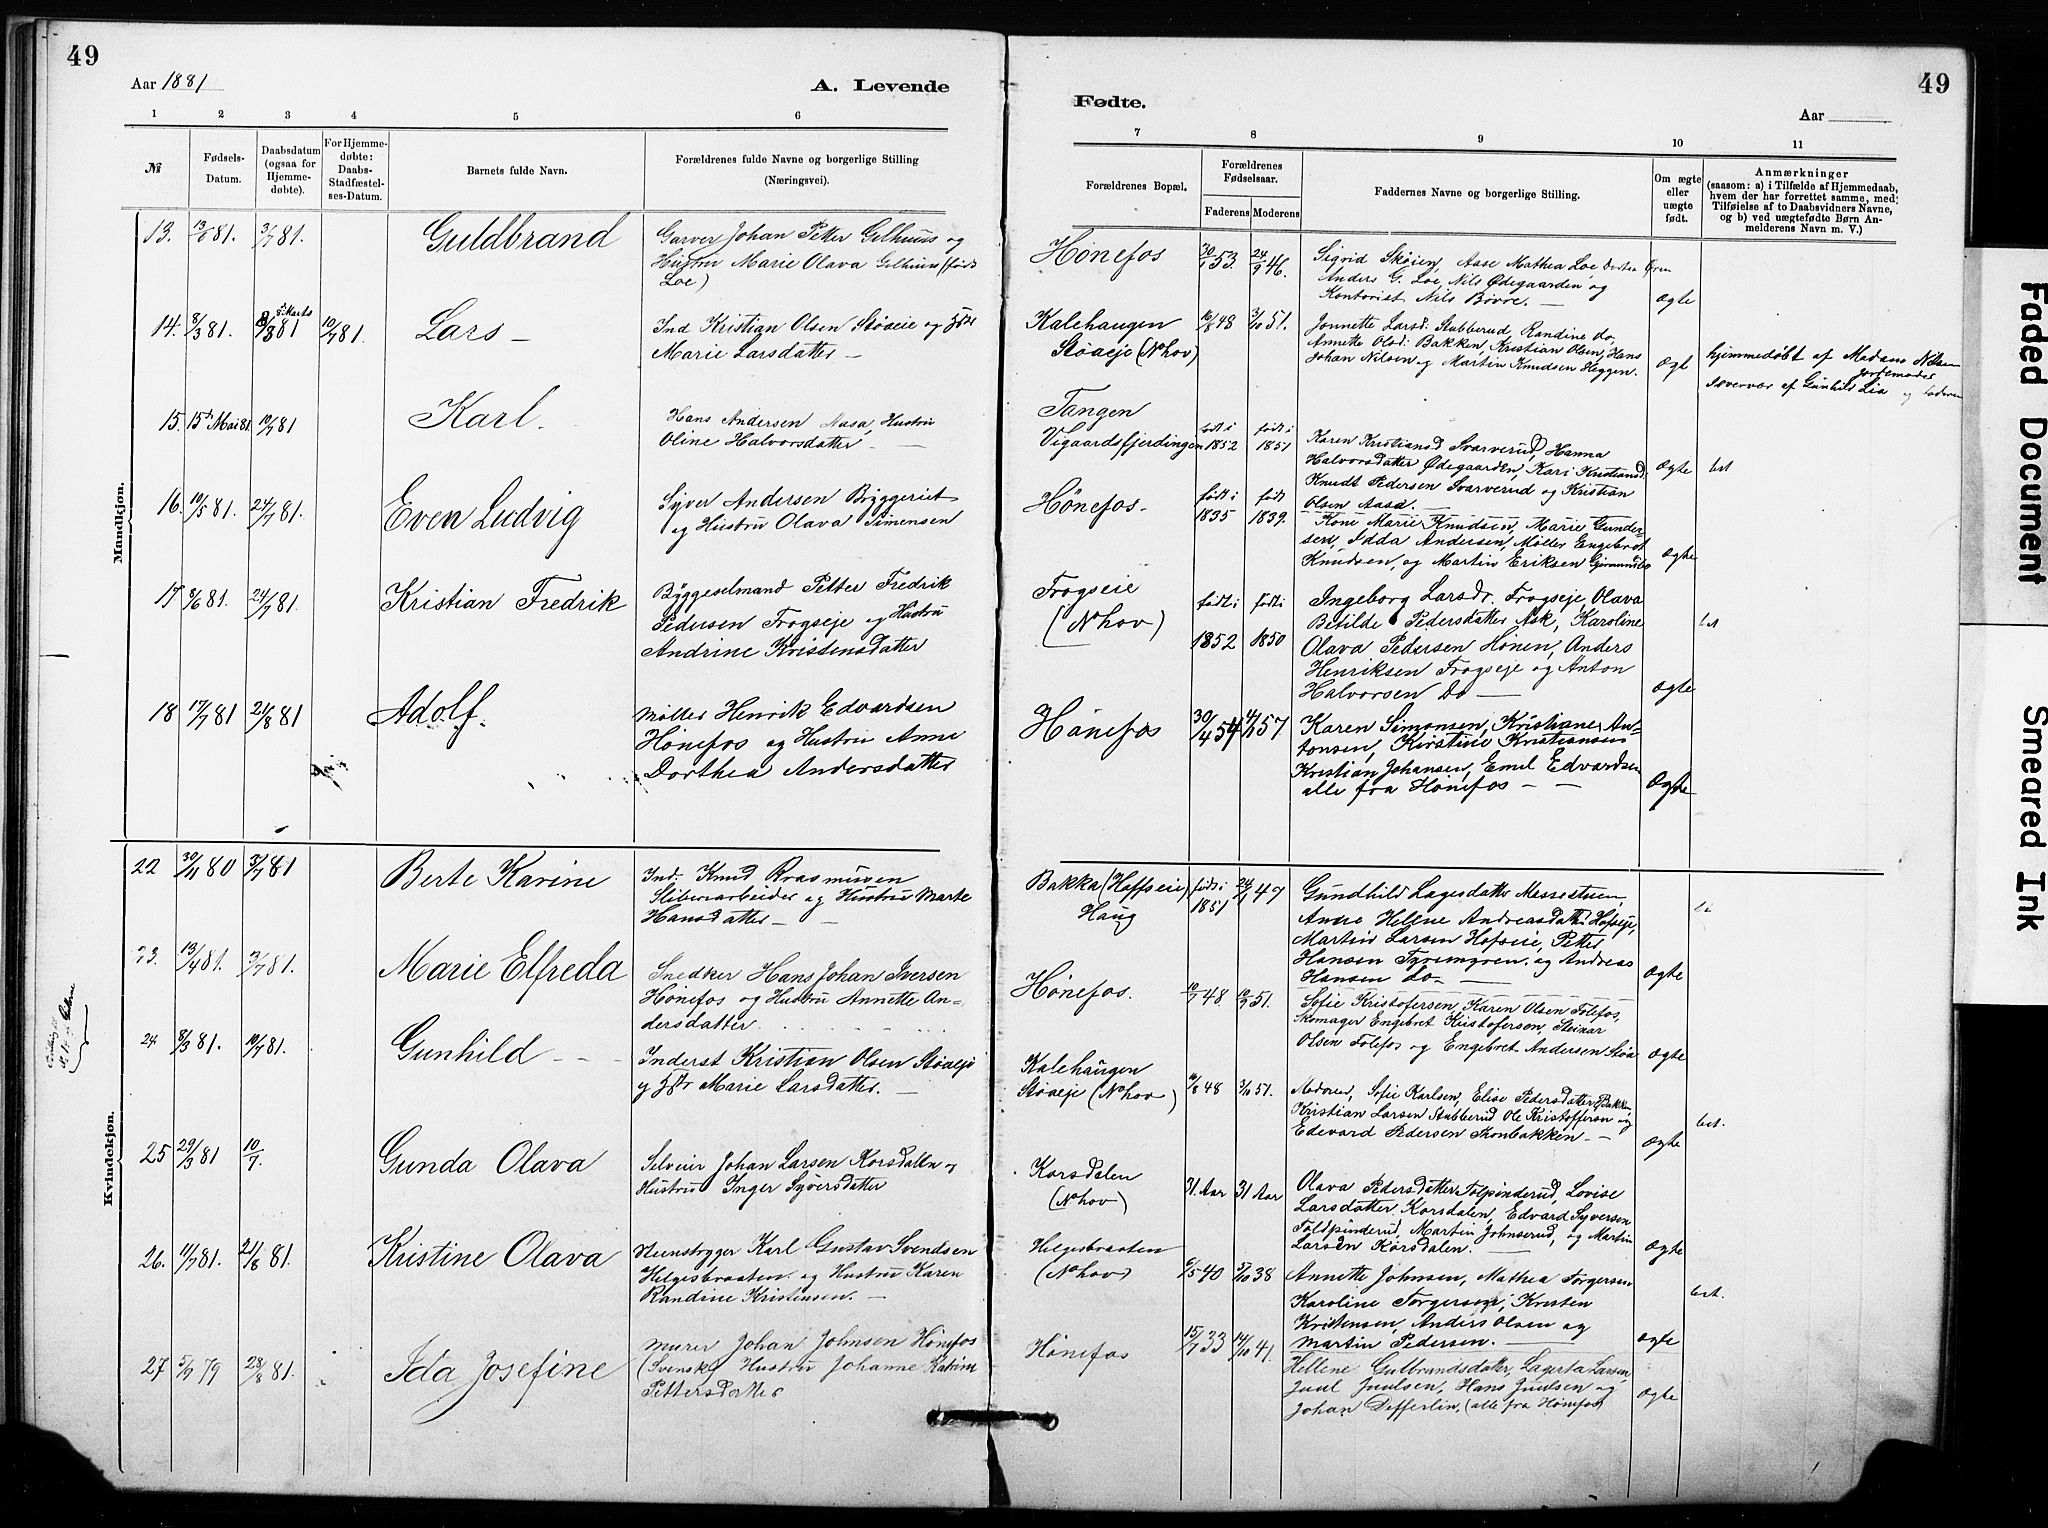 49
Aar 1881
A. Levende
1 2 3 4 5 6
№
Fødsels-Datum.
Daabsdatum (ogsaa for Hjemme-døbte).
For Hjemme-døbte: Daabs-Stadfæstel-ses-Datum.
Barnets fulde Navn.
Forældrenes fulde Navne og borgerlige Stilling
(Næringsvei).
Mandkjøn.
13. 13/6 81. 3/7 81. Guldbrand
Garver Johan Petter Gilhuus og
Hustru Marie Olava Gilhuus (født
Loe)
14. 8/3 81. 8/3 81 10/7 81. Lars
Ind Kristian Olsen Støaeie og
Marie Larsdatter
15. 15de Mai 81. 10/7 81 Karl.
Hans Andersen Aasa, Hustru
Oline Halvorsdatter
16. 10/5 81. 24/7 81. Even Ludvig
Syver Andersen Bryggeriet
og Hustru Olava Simensen
17 8/6 81. 24/7 81. Kristian Fredrik
Byggeselmand Petter Fredrik
Pedersen Frogseje og Hustru
Andrine Kristensdatter
18 17/7 81 21/8 81 Adolf.
Møller Henrik Edvardsen
Hønefos og Hustru Anne
Dorthea Andersdatter
Kvindekjøn.
22 30/11 80 3/7 81 Berte Karine
Ind. Knud Rasmussen
Sliberiarbeider og Hustru Marte
Hansdatter
23. 13/4 81. 3/7 81. Marie Elfreda
Snedker Hans Johan Iversen
Hønefos og Hustru Annette An-
dersdatter.
24 8/3 81. 10/7 81. Gunhild
Inderst Kristian Olsen Støaeje
og Marie Larsdatter.
25 29/3 81 10/7. Gunda Olava
Selveier Johan Larsen Korsdalen og
Hustru Inger Syversdatter
26. 11/7 81. 21/8 81. Kristine Olava
Karl Gustav Svendsen
Helgesbraaten og Hustru Karen
Randine Kristensen.
27 5/9 79 28/8 81. Ida Josefine
Murer Johan Johnsen Hønefos
(Svensk) Hustru Johanne Katrine
Pettersdatter
49
Fødte.
Aar
7 8 9 10 11
Forældrenes Bopæl.
Forældrenes Fødselsaar.
Faderens Moderens
Faddernes Navne og borgerlige Stilling.
Om ægte eller uægte født.
Anmærkninger
(saasom: a) i Tilfælde af Hjemmedaab,
hvem der har forrettet samme, med
Tilføielse af to Daabsvidners Navne,
og b) ved uægtefødte Børn An-
melderens Navn m. V.)
Hønefos 30/1 53. 24/9 46.
Sigrid Skøien, Aase Mathea Loe
Anders G. Loe, Nils Ødegaarden og
Kontorist Nils Bovre.
Ægte
Kalehaugen
Støaeje (Nhov)
16/8 48 3/10 51.
Jonnette Larsd. Stubberud Randine do,
Annette Olsd. Bakken, Kristian Olsen, Hans
Johan Nilsen og Martin Knudsen Heggen.
Ægte
hjemmedøbt af Madam Nilsen
Jordemoder
i Overvær af Gunhild Lia og Faderen
Tangen
Vigaardsfjerdingen
født i 1852 født i 1851
Karen Kristiansd Svarverud, Hanna
Halvorsdatter Ødegaarden, Kari Kristiansd.
Knudt Pedersen Svarverud og Kristian
Olsen Aasa.
Ægte bet
Hønefos.
født i 1835 født 1839.
Kone Marie Knudsen, Marie Gunder-
sen, Idda Andersen, Møller Engebret
Knudsen, og Martin Eriksen
Ægte
Frogseie
(Nhov)
født i 1852 født i 1850
Ingeborg Larsdr. Frogseje, Olava
Betilde Pedersdatter Ask, Karoline
Olava Pedersen Hønen, Anders
Henriksen Frogseje og Anton
Halvorsen Do
Ægte bet
Hønefos 30/4 54 4/1 57
Karen Simonsen, Kristiane An-
tonsen, Kirstine Kristiansen
Kristian Johansen, Emil Edvardsen
alle fra Hønefos
Ægte
Bakka (Hoffseie)
Haug
født i 1851 24/1 47
Gundhild Lagesdatter Messestuen,
Anne Hellene Andreasdatter Hofseje,
Martin Larsen Hofseie, Petter
Hansen Tyrimyren. og Andreas
Hansen do
Ægte
Hønefos. 10/7 48. 10/9 51.
Sofie Kristofersen, Karen Olsen Follefos,
Skomager Engebret Kristofersen, Steinar
Olsen Folefos og Engebret Andersen Støa
Ægte
Kalehaugen
Støaeje (Nhov)
16/8 48 3/10 51.
Moderen, Sofie Karlsen, Elise Pedersdatter Bakken,
Kristian Larsen Stubberud Ole Kristoffersen og
Edevard Pedersen Monbakken
Ægte bet.
Korsdalen
(Nhov)
31 Aar 31 Aar
Olava Pedersdatter Tolpinderud, Lovise
Larsdatter, Korsdalen, Edvard Syversen
Toldpinderud, Martin Johnserud, og Martin
Larsen Korsdalen.
Ægte
Helgesbraaten
(Nhov)
6/5 40 5/10 38
Annette Johnsen, Mathea Torgersen
Karoline Torgersen, Kristen
Kristensen, Anders Olsen og
Martin Pedersen.
Ægte bet.
Hønefos 15/7 33 14/10 41.
Hellene Gulbrandsdatter, Lagerta Larsen,
Juul Juulsen, Hans Juulsen og
Johan Defferlin, (alle fra Hønefos)
Ægte
Faded Document
Smeared Ink